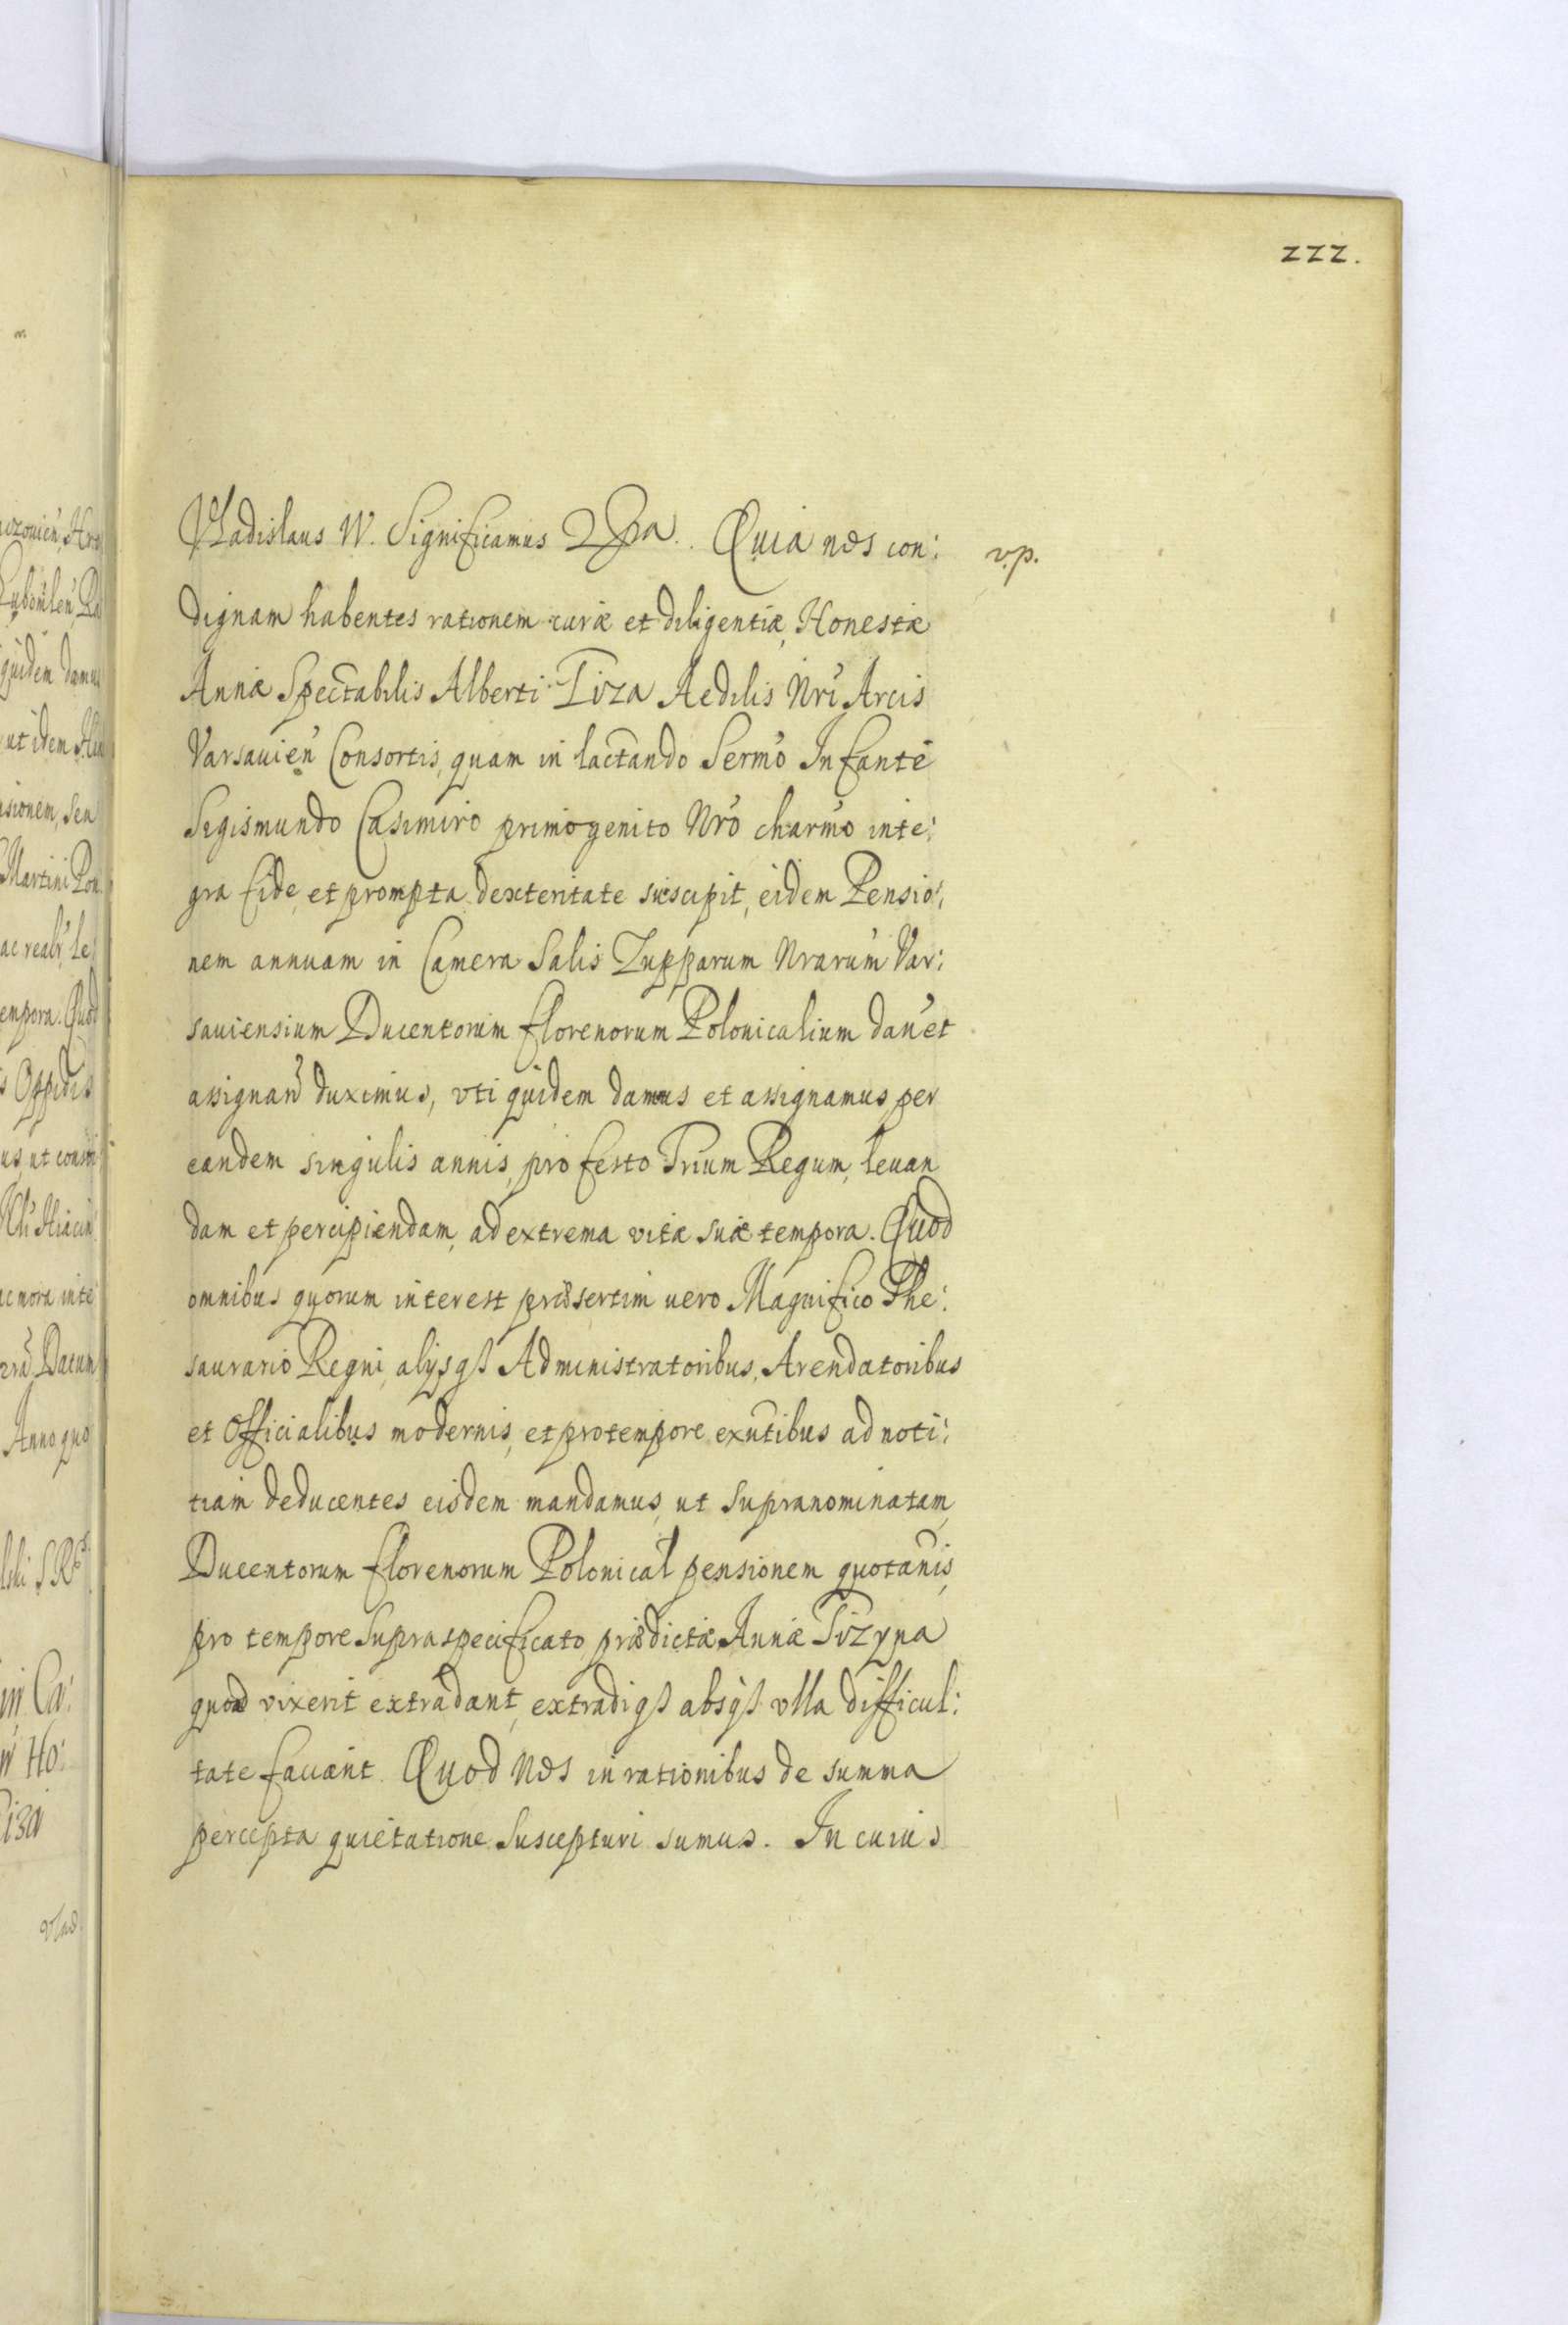 222.
Vladislaus IV. Significamus Qpa. Quia nos con:
v.p.
dignam habentes rationem curæ et diligentiæ, Honestæ
Annæ Spectabilis Alberti Tiza Aedilis Nri Arcis
Varsavien Consortis, quam in lactando Sermo Infante
Sigismundo Casimiro primogenito Nro charmo inte:
gra fide, et prompta dexteritate suscepit, eidem Pensio:
nem annuam in Camera Salis Zupparum Nrarum Var:
saviensium Ducentorum florenorum Polonicalium dan et
assignand duximus, uti quidem damus et assignamus per
eandem singulis annis, pro festo Trium Regum, levan
dam et percipiendam, ad extrema vitæ suæ tempora. Quod
omnibus quorum interest præsertim vero Magnifico The:
saurario Regni, alijsqß Administratoribus, Arendatoribus
et Officialibus modernis, et pro tempore exntibus ad noti:
tiam deducentes eisdem mandamus, ut supranominatam,
Ducentorum florenorum Polonical pensionem quotanis,
pro tempore supraspecificato, prædictæ Annæ Tizyna
quoad vixerit extradant, extradiqß absqß ulla difficul:
tate faciant. Quod Nos in rationibus de summa
percepta quietatione suscepturi sumus. In cuius